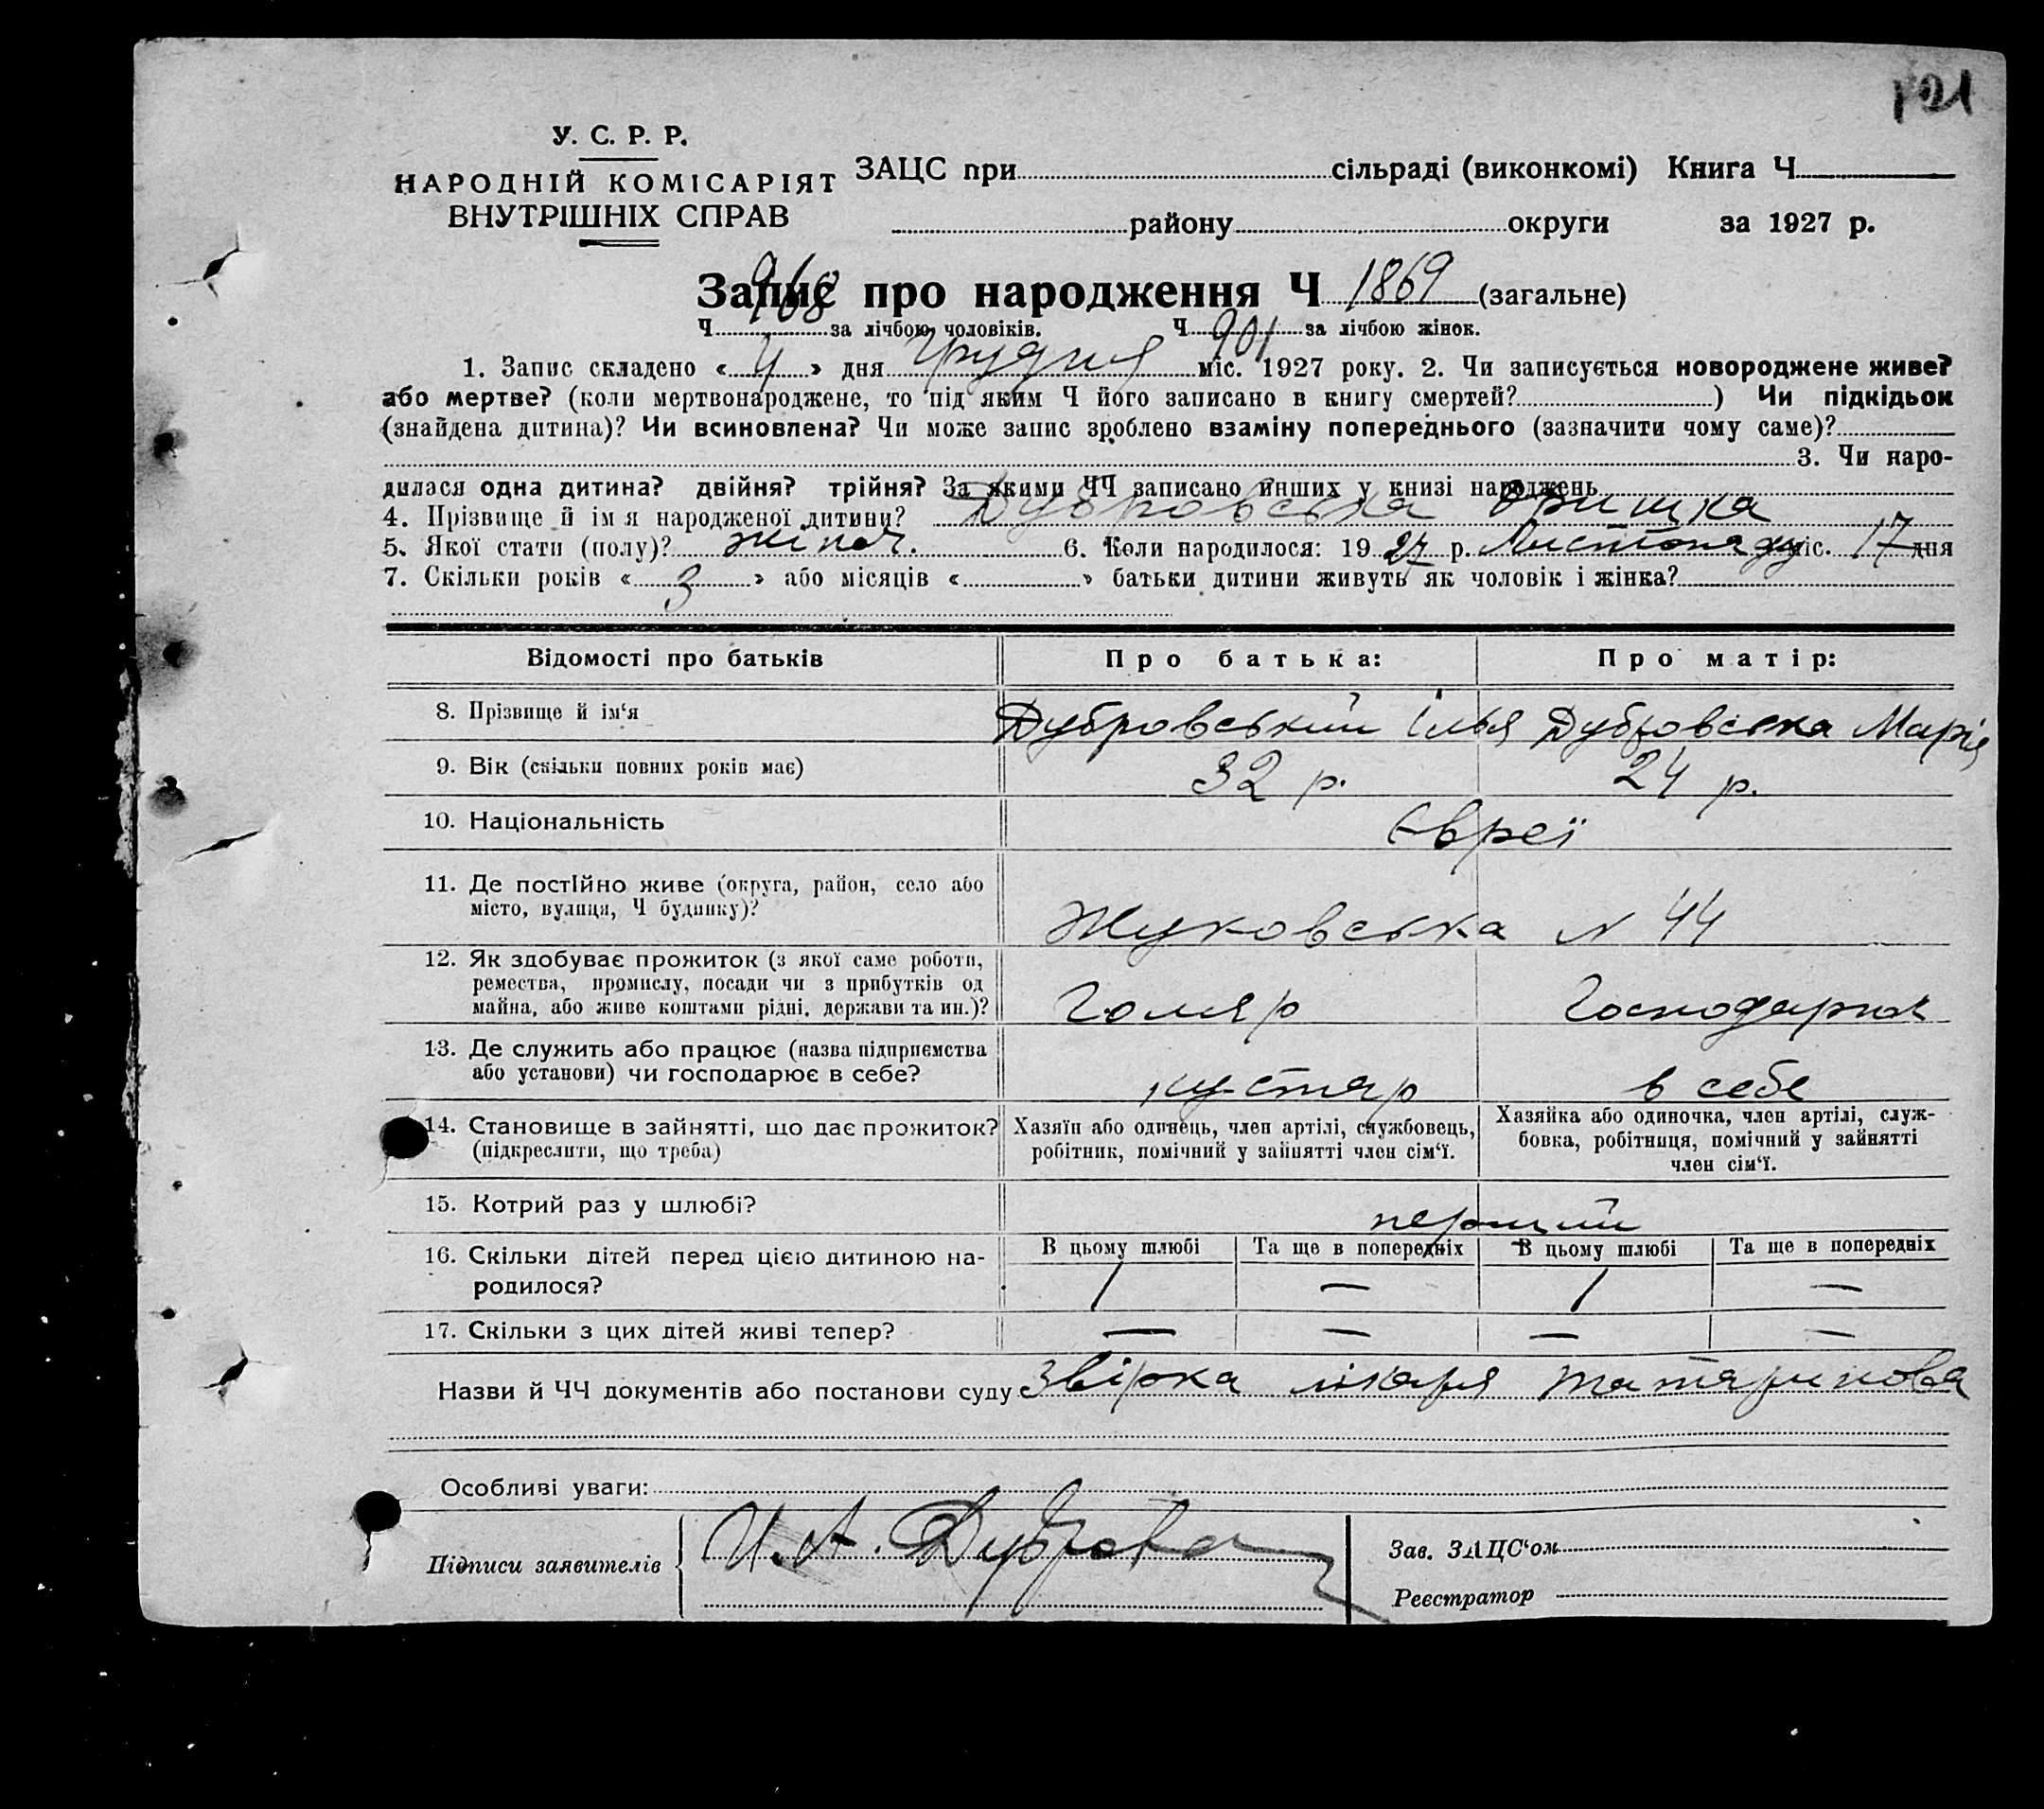 121
У. С. Р. Р.
НАРОДНІЙ КОМІСАРІЯТ
ВНУТРІШНІХ СПРАВ
ЗАЦС при сільраді (виконкомі) Книга Ч
району округи за 1927 р.
Запис про народження Ч 1869 (загальне)
Ч 968 за лічбою чоловіків. Ч 901 за лічбою жінок.
1. Запис складено « 4 » дня грудня міс. 1927 року. 2. Чи записується новороджене живе?
або мертве? (коли мертвонароджене, то під яким Ч його записано в книгу смертей? ) Чи підкідьок
(знайдена дитина)? Чи всиновлена? Чи може запис зроблено взаміну попереднього (зазначити чому саме)?
3. Чи наро-
дилася одна дитина? двійня? трійня? За якими ЧЧ записано инших у книзі народжень
4. Прізвище й ім я народженої дитини? Дубровська Оришка
5. Якої стати (полу)? жіноч. 6. Коли народилося: 19 27 р. Листопаду міс. 17 дня
7. Скільки років « 3 » або місяців « » батьки дитини живуть як чоловік і жінка?
Відомості про батьків Про батька: Про матір:
8. Прізвище й ім‘я Дубровський Ілья Дубровська Марія
9. Вік (скільки повних років має) 32 р. 24 р.
10. Національність Євреї
11. Де постійно живе (округа, район, село або
місто, вулиця, Ч будинку)? Жуковська № 44
12. Як здобуває прожиток (з якої саме роботи,
ремества, промислу, посади чи з прибутків од
майна, або живе коштами рідні, держави та ин.)? Голяр Господарка
13. Де служить або працює (назва підприємства
або установи) чи господарює в себе? кустар в себе
14. Становище в зайнятті, що дає прожиток?
(підкреслити, що треба)
Хазяїн або одинець, член артілі, службовець,
робітник, помічний у зайнятті член сім‘ї.
Хазяйка або одиночка, член артілі, служ-
бовка, робітниця, помічний у зайнятті
член сім‘ї.
15. Котрий раз у шлюбі? перший
16. Скільки дітей перед цією дитиною на-
родилося?
В цьому шлюбі Та ще в попередніх В цьому шлюбі Та ще в попередніх
1 — 1 —
17. Скільки з цих дітей живі тепер? — — — —
Назви й ЧЧ документів або постанови суду Звірка лікаря Татаринова
Особливі уваги:
Підписи заявителів И. А. Дуброва
Зав. ЗАЦС‘ом
Реєстратор